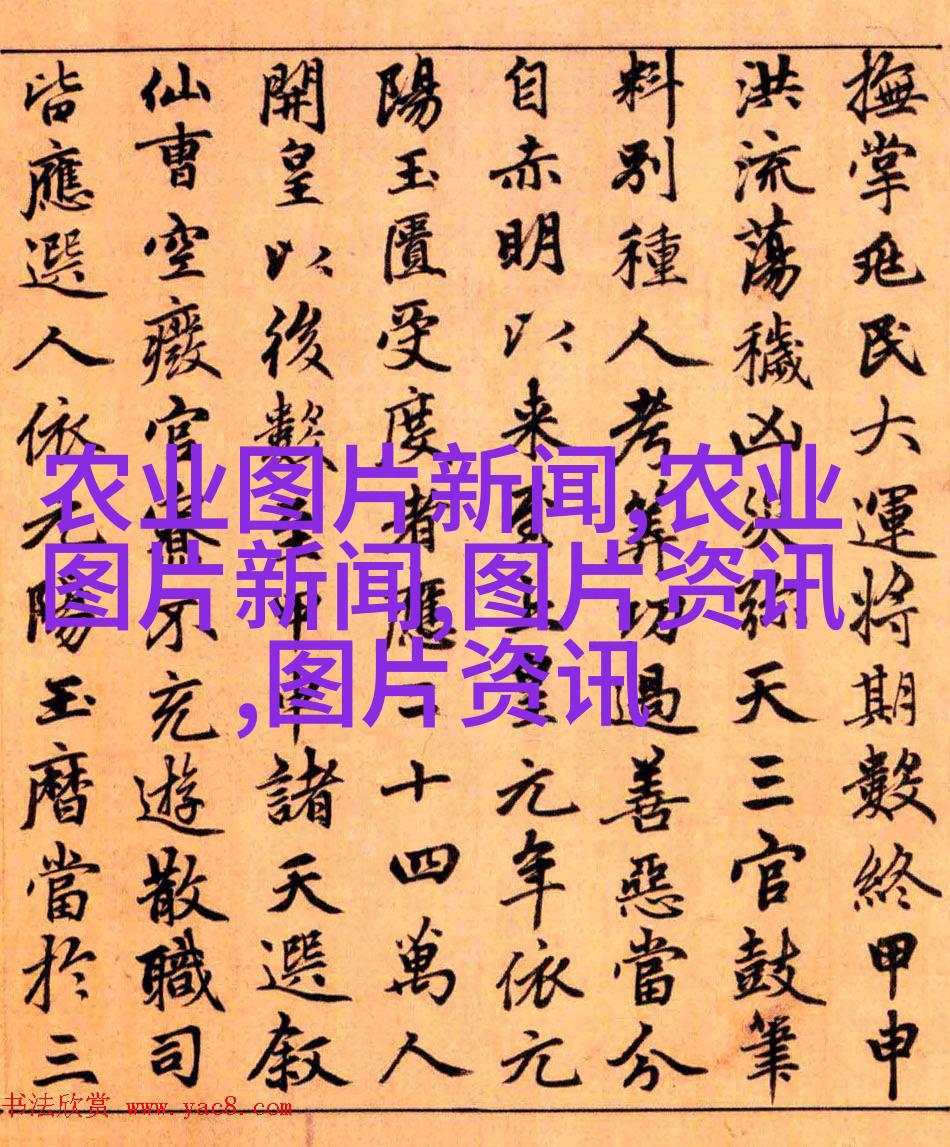 撫掌兆民大運將期數終甲申
洪流蕩穢凶災彌天三官鼓筆
料別種人考筭功過善惡當分
自赤明以来至上皇元年依元
陽玉匱受度者應二十四萬人
開皇以後數至甲申諸天選敘
仙曹空廢官寮不充遊散職司
皆應選人依元陽玉曆當於三
农业图片新闻,农业
图片新闻,图片资讯
,图片资讯
书法欣赏 www.yac8.com